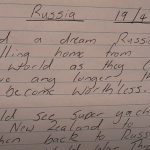 Russia 19/4
d a dream Russia
lling home from
world as they
ve any longer th
become worthless.
ld see super yach
New Zealand
hen back to Russ